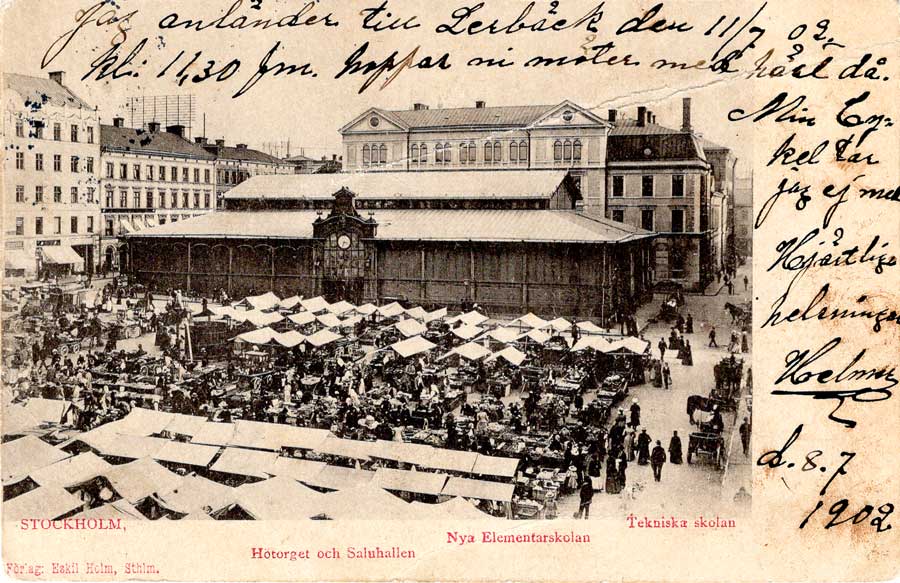 Jag anländer till Lerbäck den 11/7 02.
kl: 11,30 fm. hoppar ni möter med häst då.
Min Cy-
kel tar
jag ej med
Hjärtliga
helsningar
Helmer
d. 8. 7
1902
STOCKHOLM,
Hötorget och Saluhallen
Nya Elementarskolan
Tekniska skolan
Förlag: Eskil Holm, Sthlm.